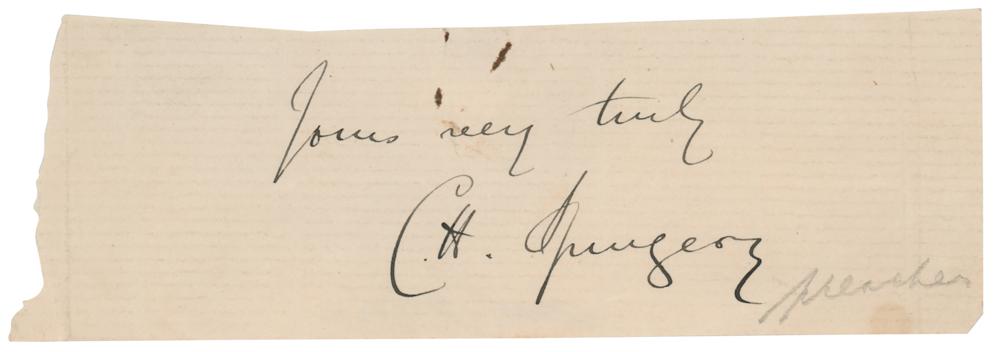 Yours very truly
C. H. Spurgeon
preacher